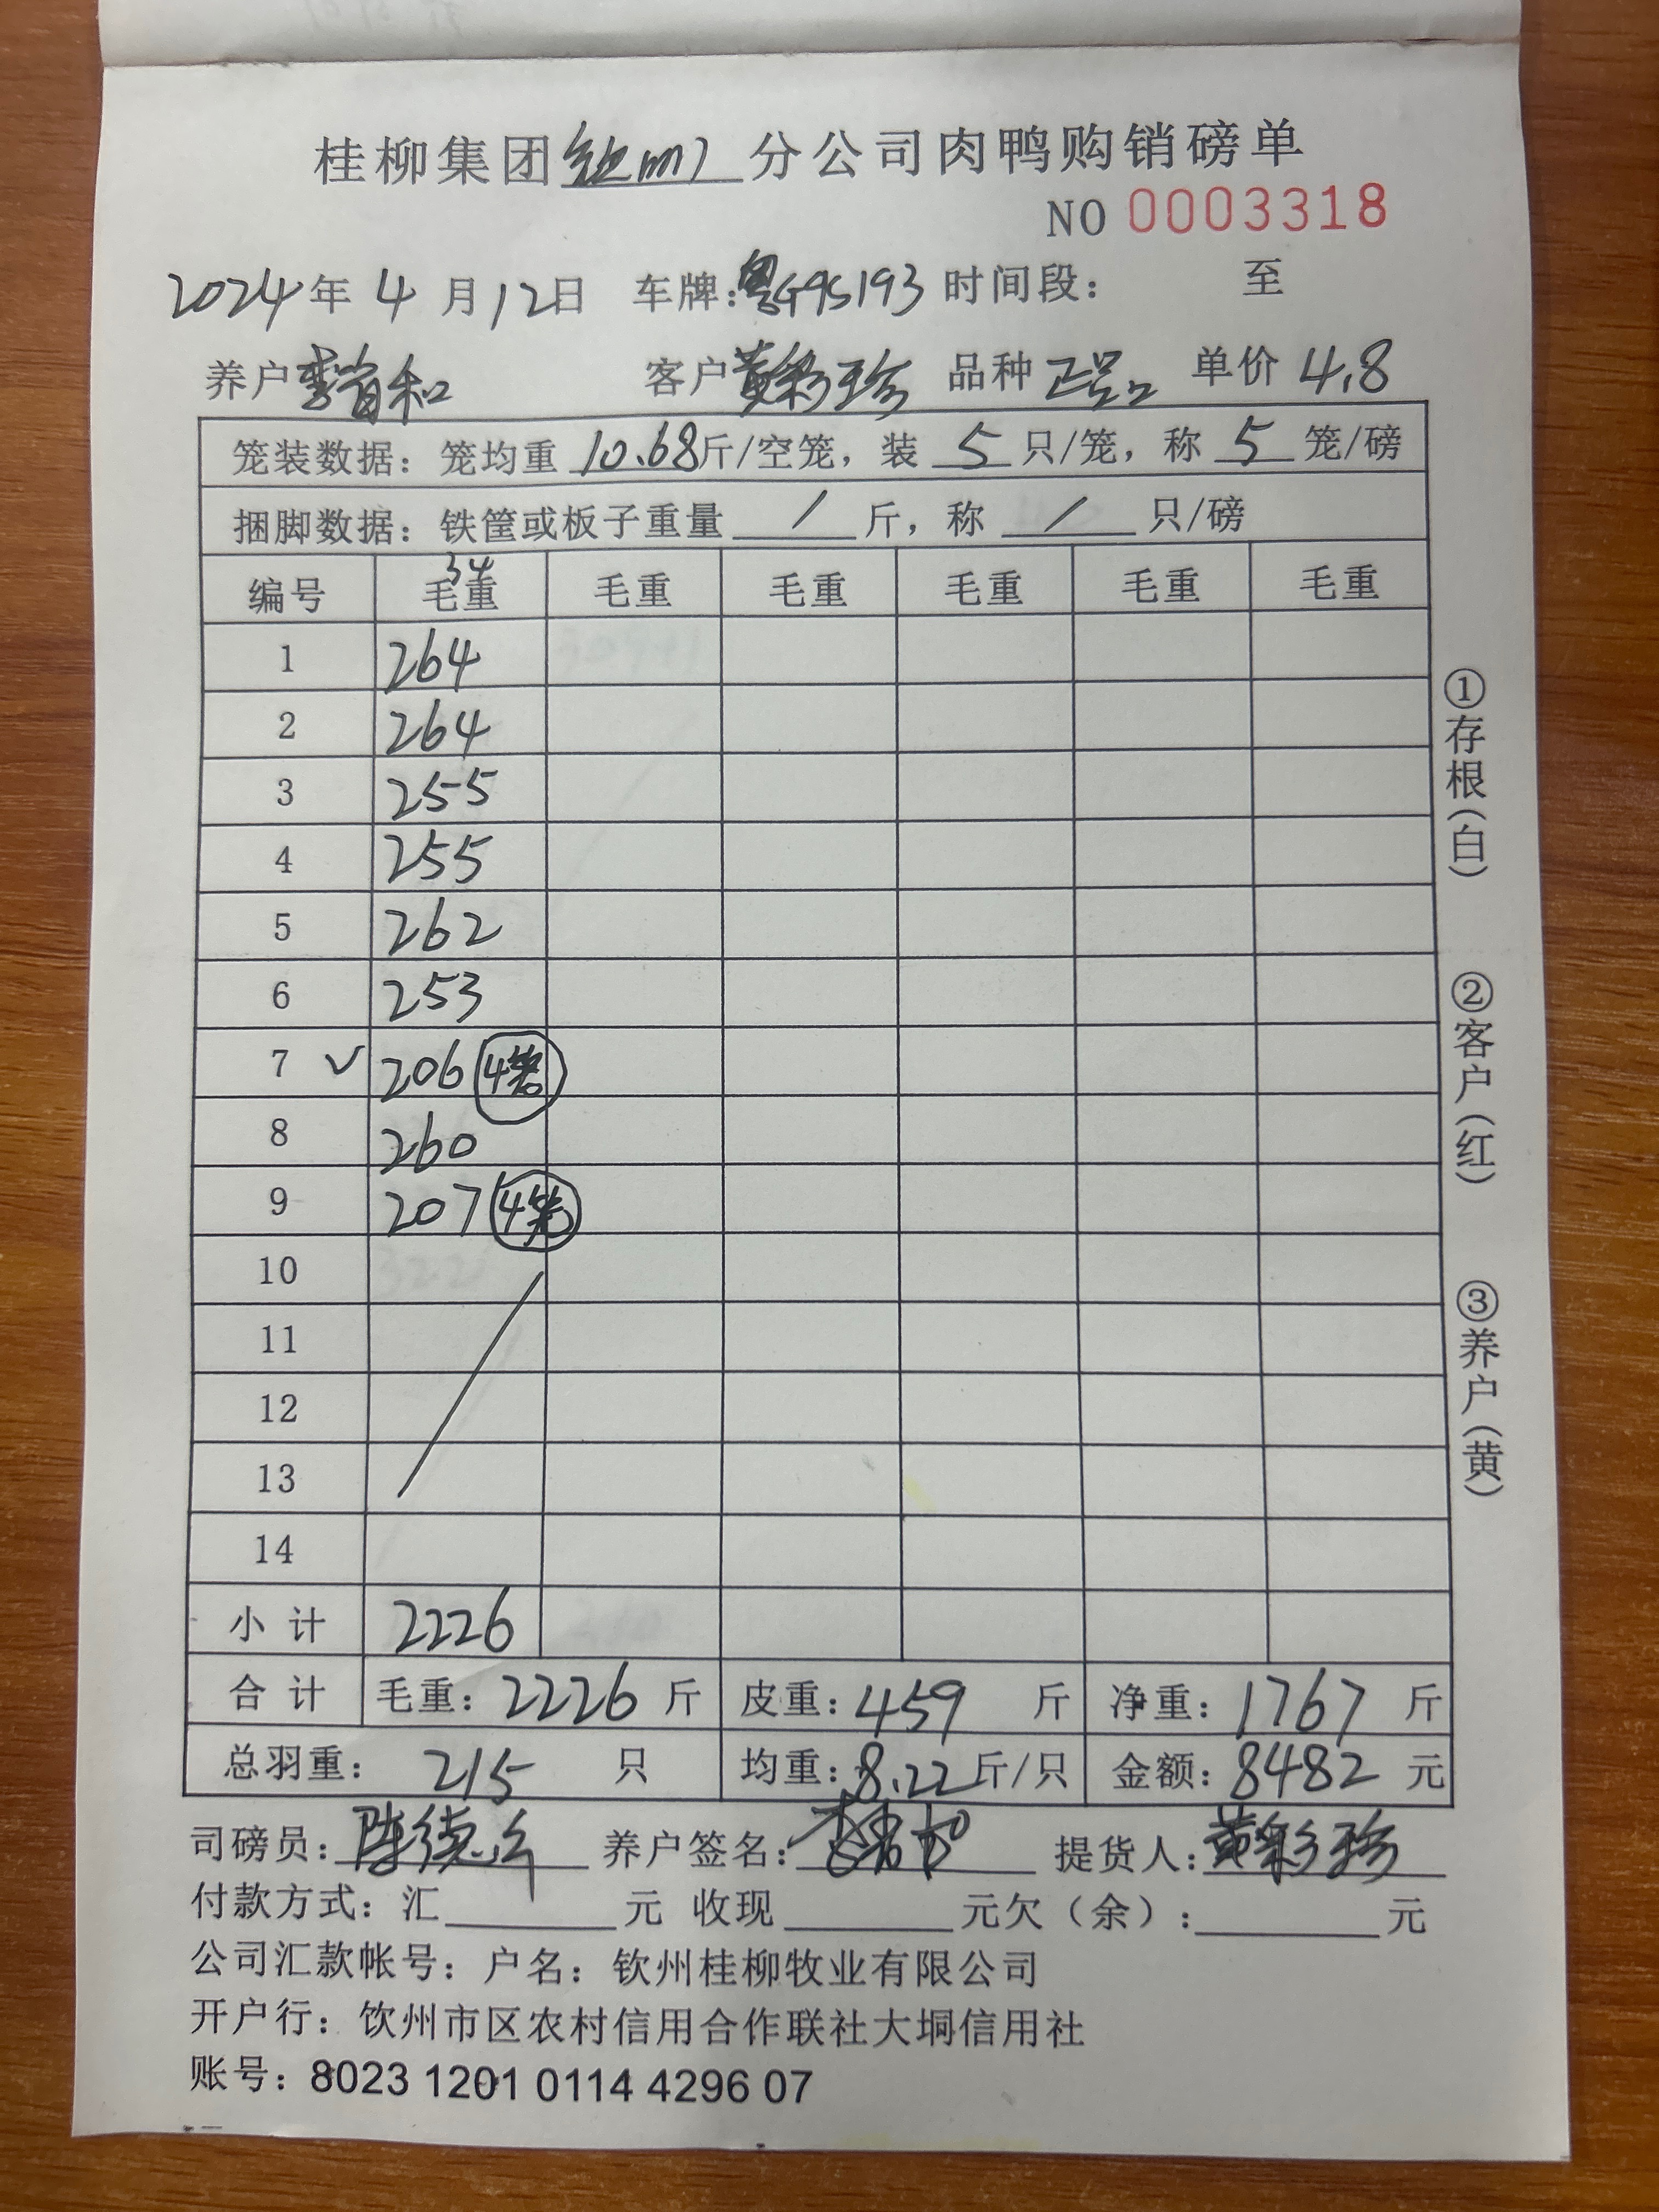 桂柳集团 分公司肉鸭购销磅单
NO 0003318
2024年 4 月12日 车牌:粤G95193 时间段: 至
养户 李肖和 客户 黄彩珍 品种 正品 单价 4.8
笼装数据: 笼均重 10.68 斤/空笼, 装 5 只/笼, 称 5 笼/磅
捆脚数据: 铁筐或板子重量 / 斤, 称 / 只/磅
34
编号 毛重 毛重 毛重 毛重 毛重 毛重
1 264
2 264
3 255
4 255
5 262
6 253
7 ✓ 206 4笼
8 260
9 207 4笼
10
11
12
13
14
小计 2226
合计 毛重: 2226 斤 皮重: 459 斤 净重: 1767 斤
总羽重: 215 只 均重: 8.22 斤/只 金额: 8482 元
司磅员: 陈德 养户签名: 提货人: 黄彩珍
付款方式: 汇 元 收现 元欠(余): 元
公司汇款帐号: 户名: 钦州桂柳牧业有限公司
开户行: 饮州市区农村信用合作联社大垌信用社
账号: 8023 1201 0114 4296 07
①存根(白)
②客户(红)
③养户(黄)